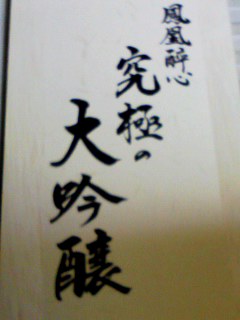 鳳凰酔心
究極の
大吟醸